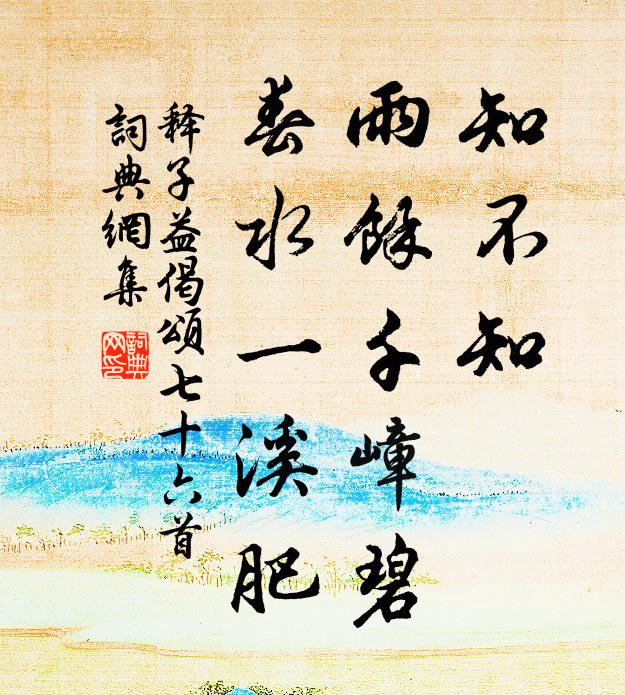 知不知
雨餘千嶂碧
春水一溪肥
释子益偈頌七十六首
詞典網集
詞典网印